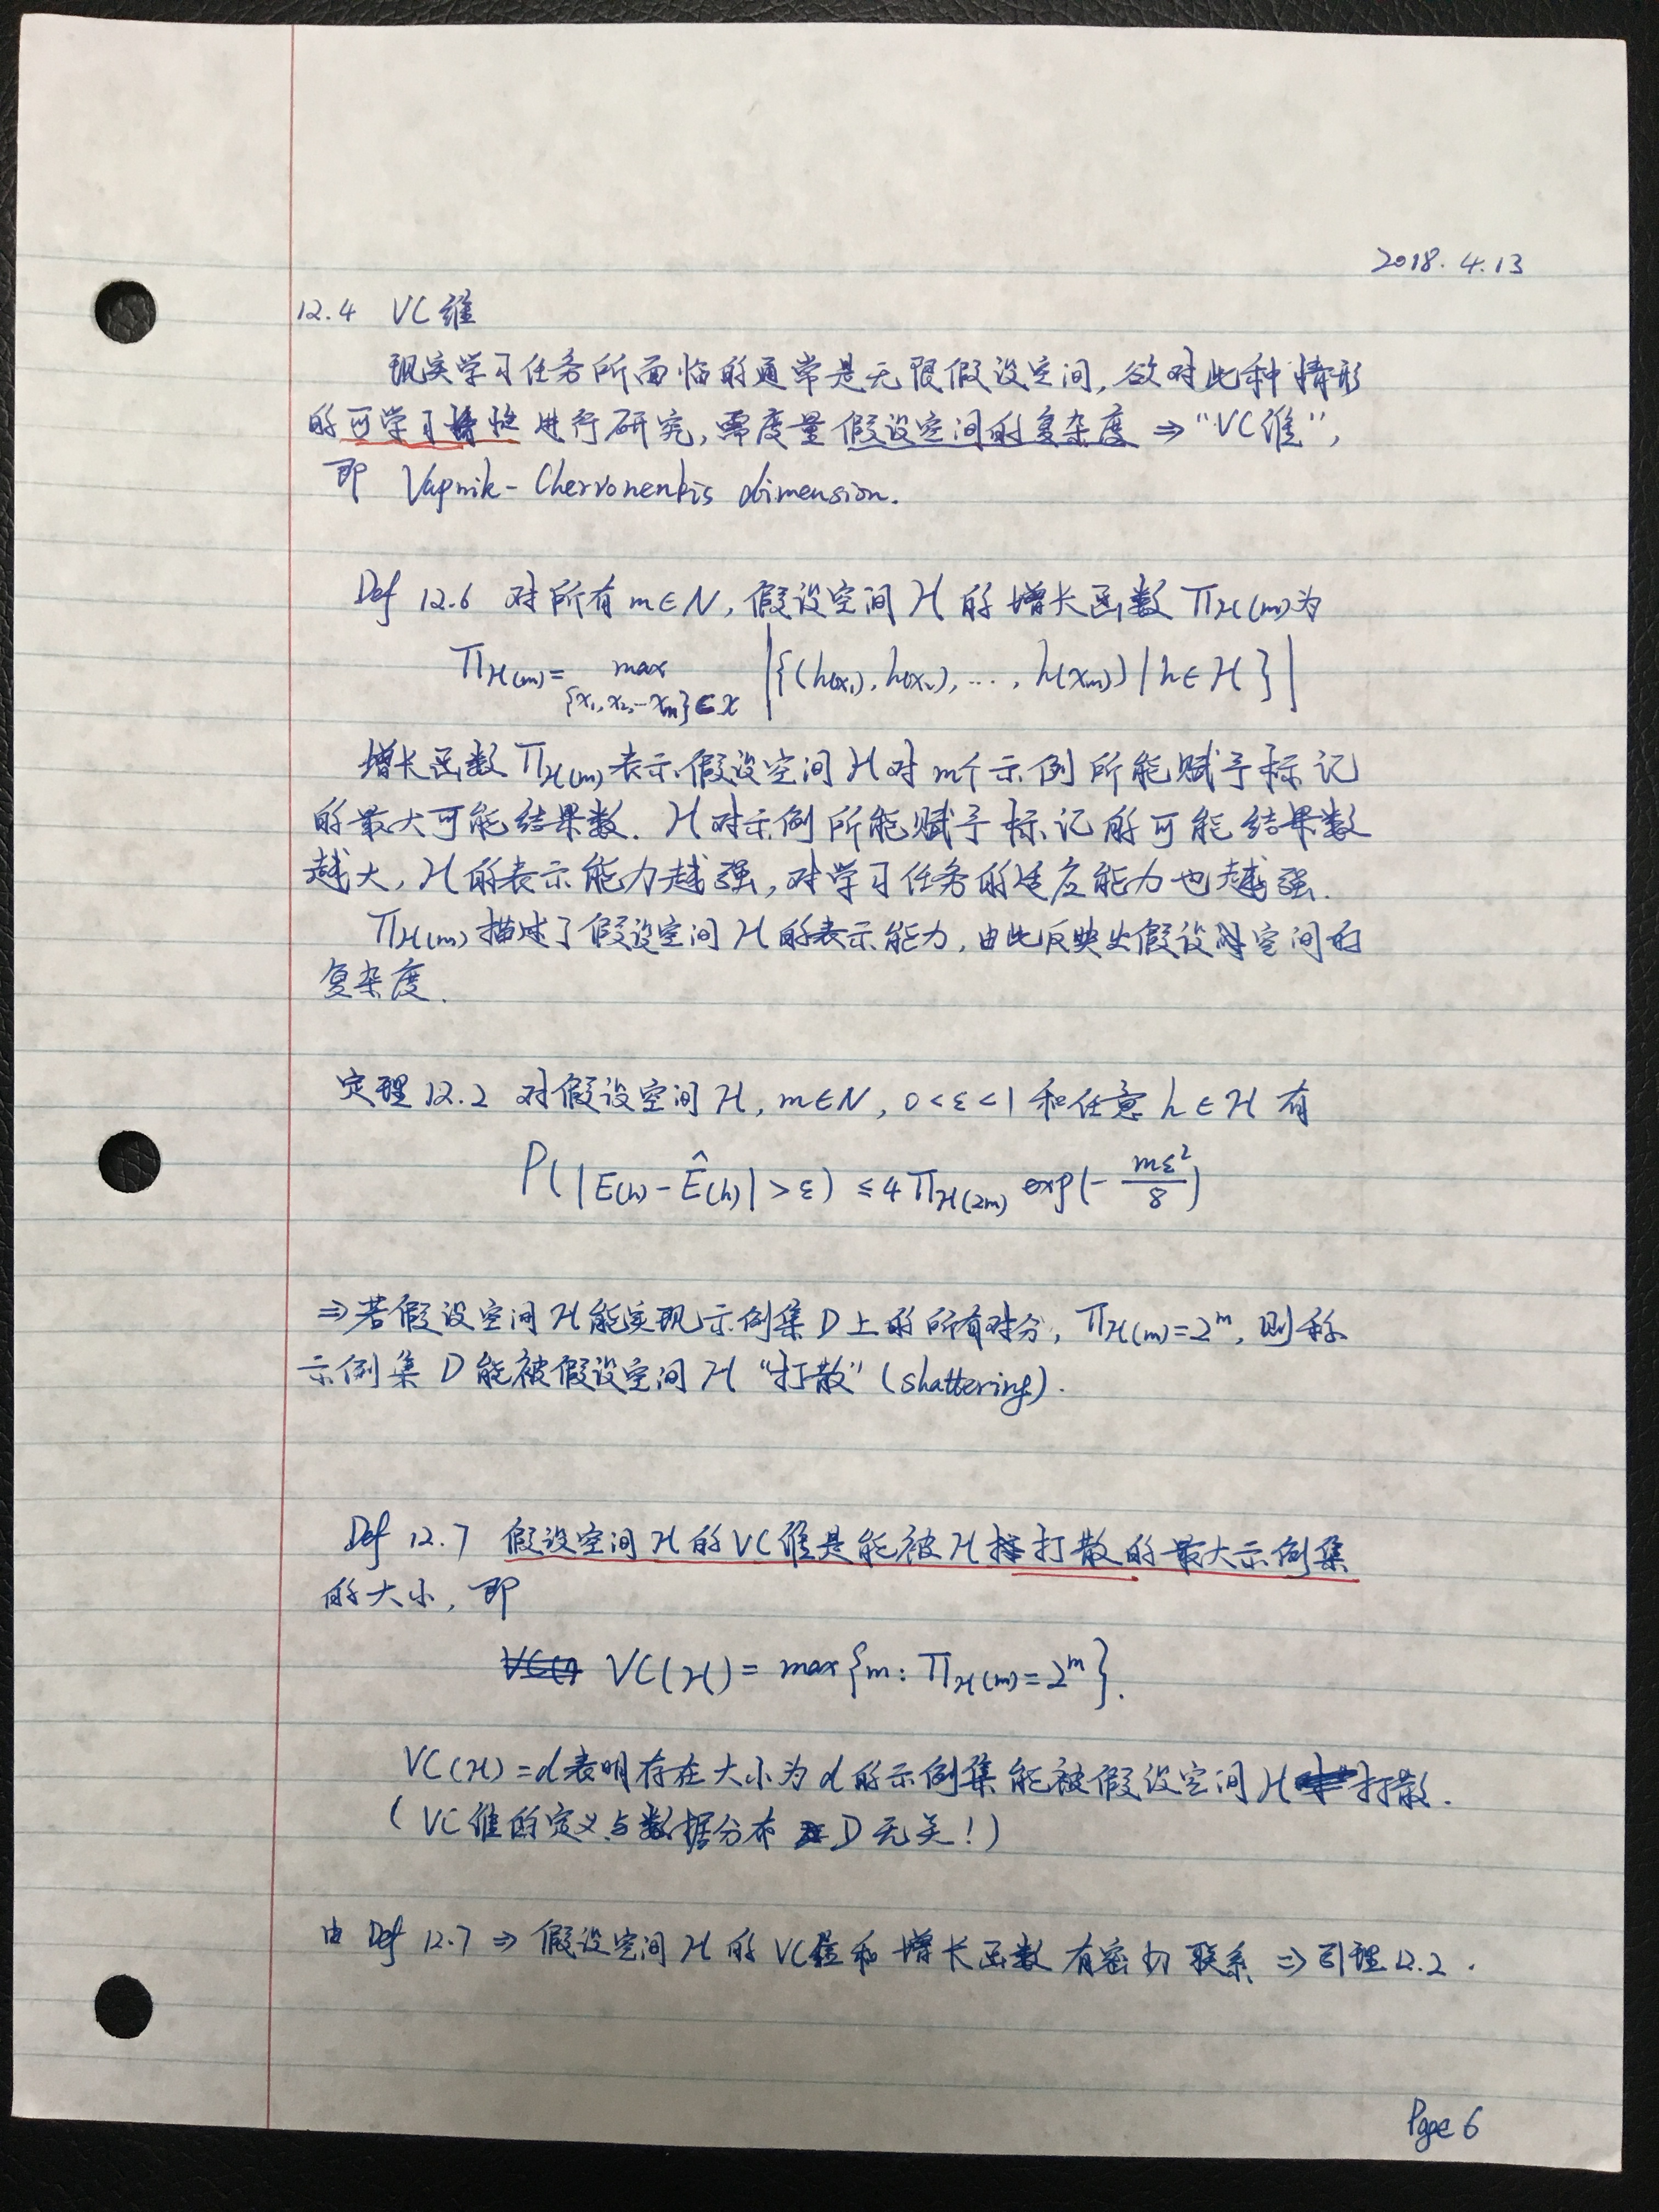 2018.4.13
12.4 VC维
现实学习任务所面临的通常是无限假设空间,欲对此种情形
的可学习性进行研究,需度量假设空间的复杂度 ⇒ "VC维",
即 Vapnik-Chervonenkis dimension.
Def 12.6 对所有 m∈N, 假设空间 H 的增长函数 Π_H(m)为
Π_H(m) = max_{{x₁,x₂,…xₘ}⊆X} |{(h(x₁), h(x₂), ..., h(xₘ)) | h∈H}|
增长函数 Π_H(m) 表示假设空间 H 对 m个示例所能赋予标记
的最大可能结果数. H对示例所能赋予标记的可能结果数
越大, H的表示能力越强, 对学习任务的适应能力也越强.
Π_H(m) 描述了假设空间 H 的表示能力, 由此反映出假设空间的
复杂度.
定理 12.2 对假设空间 H, m∈N, 0<ε<1 和任意 h∈H 有
P(|E(h)-Ê(h)|>ε) ≤ 4Π_H(2m) exp(-mε²/8)
⇒若假设空间 H能实现示例集 D上的所有对分, Π_H(m)=2^m, 则称
示例集 D能被假设空间 H "打散" (shattering).
Def 12.7 假设空间 H的VC维是能被H打散的最大示例集
的大小, 即
VC(H) = max{m: Π_H(m)=2^m}.
VC(H)=d表明存在大小为d的示例集能被假设空间H打散.
(VC维的定义与数据分布 D 无关!)
由 Def 12.7 ⇒ 假设空间 H 的 VC维和增长函数有密切联系 ⇒ 引理12.2.
Page 6